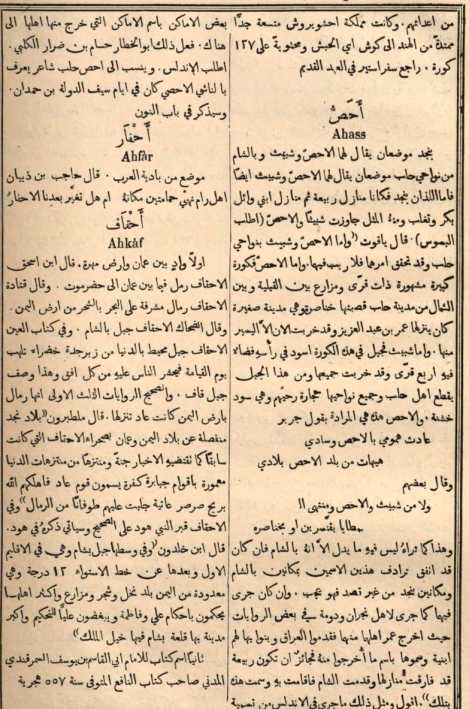 من اعدائهم. وكانت مملكة احشويروش متسعة جدًّا
ممتدة من الهند الى كوش اي الحبش ومحتوية على ١٢٧
كورة. راجع سفر استير في العهد القديم
أَحَصّ
Ahass
بنجد موضعان يقال لهما الاحصّ وشبيث وبالشام
من نواحي حلب موضعان يقال لهما الاحصّ وشبيث ايضًا
فاما اللذان بنجد فكانا منازل ربيعة ثم منازل ابني وائل
بكر وتغلب ومنهُ المثل جاوزت شبيثًا والاحصّ (اطلب
البسوس). قال ياقوت «واما الاحصّ وشبيث بنواحي
حلب وقد تحقق امرها فلا ريب فيها. واما الاحصّ فكورة
كبيرة مشهورة ذات قرى ومزارع بين القبلة وبين
الشمال من مدينة حلب قصبتها خناصرة وهي مدينة صغيرة
كان ينزلها عمر بن عبد العزيز وقد خربت الان الّا اليسير
منها. واما شبيث فجبل في هذه الكورة اسود في رأسه فضاء
فيه اربع قرى وقد خربت جميعها ومن هذا الجبل
يقطع اهل حلب وجميع نواحيها حجارة رحيّهم وهي سود
خشنة. والاحص هذه هي المرادة بقول جرير
عادت همومي بالاحص وسادي
هيهات من بلد الاحص بلادي
وقال بعضهم
ولا من شبيث والاحص ومنتهى ال
مطايا بقنسرين او بخناصره
وهذا كما تراهُ ليس فيهِ ما يدل الّا انهُ بالشام فان كان
قد اتفق ترادف هذين الاسمين بمكانين بالشام
ومكانين بنجد من غير تعمد فهو عجب. وان كان جرى
فيها كما جرى لاهل نجران ودومة في بعض الروايات
حيث اخرج عمر اهلها منها فقدموا العراق وبنوا بها لهم
ابنية وسموها باسم ما أُخرجوا منهُ فجائز ان تكون ربيعة
قد فارقت منازلها وقدمت الشام فاقامت بهِ وسمت هذه
بتلك». اقول ومثل ذلك ما جرى في الاندلس من تسمية
بعض الاماكن باسم الاماكن التي خرج منها اهلها الى
هناك. فعل ذلك ابو الخطار حسام بن ضرار الكلبي.
اطلب الاندلس. وينسب الى احص حلب شاعر يعرف
بالناشي الاحصي كان في ايام سيف الدولة بن حمدان.
وسيذكر في باب النون
أَحْفَار
Ahfâr
موضع من بادية العرب. قال حاجب بن ذبيان
اهل رام نهيَ حمامتين مكانهُ ام هل تغيّر بعدنا الاحفارُ
أَحْقَاف
Ahkâf
اولًا وادٍ بين عمان وارض مهرة. قال ابن اسحق
الاحقاف رمل فيما بين عمان الى حضرموت. وقال قتادة
الاحقاف رمال مشرفة على البحر بالشحر من ارض اليمن.
وقال الضحاك الاحقاف جبل بالشام. وفي كتاب العين
الاحقاف جبل محيط بالدنيا من زبرجدة خضراء تلهب
يوم القيامة فيحشر الناس عليهِ من كل افق وهذا وصف
جبل قاف. والصحيح الروايات الثلث الاولى انها رمال
بارض اليمن كانت عاد تنزلها. قال ملطبرون «بلاد نجد
منفصلة عن بلاد اليمن وعمان بصحراء الاحقاف التي كانت
سابقًا كما تقتضيهِ الاخبار جنةً ومنتزهًا من منتزهات الدنيا
معمورة باقوام جبابرة كفرة يسمون قوم عاد فاهلكهم الله
بريح صرصر عاتية جلبت عليهم طوفانًا من الرمال» وفي
الاحقاف قبر النبي هود على الصحيح وسياتي ذكرهُ في هود.
قال ابن خلدون «وفي وسطها جبل بشام وهي في الاقليم
الاول وبعدها عن خط الاستواء ١٢ درجة وهي
معدودة من اليمن بلد نخل وشجر ومزارع واكثر اهلها
يحكمون باحكام علي وفاطمة ويبغضون عليًّا للتحكيم واكبر
مدينة بها قلعة بشام فيها خيل الملك»
ثانيًا اسم كتاب للامام ابي القاسم بن يوسف السمرقندي
المدني صاحب كتاب النافع المتوفى سنة ٥٥٧ هجرية